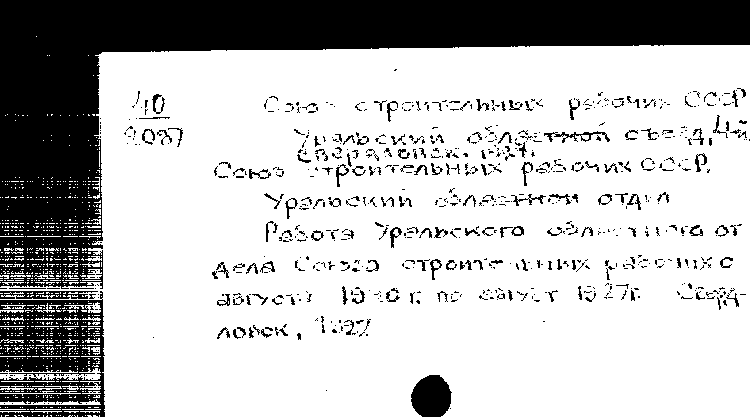 40
2087
Союз строительных рабочих СССР
Уральский областной съезд, 4-й,
Свердловск. 1927.
Союз строительных рабочих СССР.
Уральский областной отдел
Работа Уральского областного от
дела Союза строительных рабочих с
августа г. по август 1927г. Сверд-
ловск, 1927